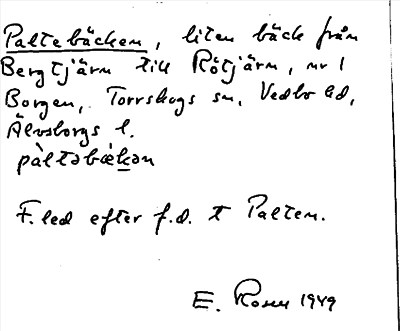 Paltebäcken, liten bäck från
Bergtjärn till Rötjärn, nr 1
Borgen, Torrskogs sn, Vedbo hd,
Älvsborgs l.
pàltəbæ̀kən
F. led efter f.d. t Palten.
E. Rosen 1949